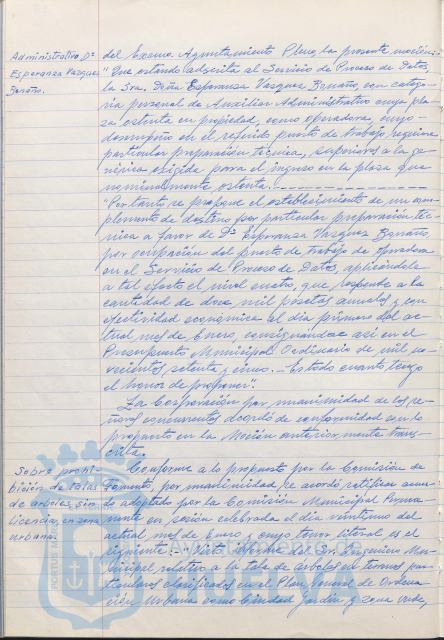 Administrativo Dª
Esperanza Vazquez
Bamaño.
del Excmo. Ayuntamiento Pleno, la presente moción:
"Que estando adscrita al Servicio de Proceso de Datos,
la Sra. Doña Esperanza Vazquez Bamaño, con catego-
ria personal de Auxiliar Administrativo cuya pla-
za ostenta en propiedad, como operadora, cuyo
desempeño en el referido puesto de trabajo requiere
particular preparación técnica, superiores a la ge-
nérica exigida para el ingreso en la plaza que
nominalmente ostenta.
"Por tanto se propone el establecimiento de un com-
plemento de destino por particular preparación téc-
nica a favor de Dª Esperanza Vazquez Bamaño,
por ocupación del puesto de trabajo de operadora
en el Servicio de Proceso de Datos, aplicándole
a tal efecto el nivel cuatro, que responde a la
cantidad de doce mil pesetas anuales y con
efectividad económica al día primero del ac-
tual mes de Enero, consignandose así en el
Presupuesto Municipal Ordinario de mil no-
vecientos setenta y cinco.- Es todo cuanto tengo
el honor de proponer".
La Corporación por unanimidad de los se-
ñores concurrentes acordó de conformidad con lo
propuesto en la Moción anteriormente trans-
crita.
Sobre prohi-
bición de talas
de arboles, sin
licencia, en zona
urbana.
Conforme a lo propuesto por la Comisión de
Fomento, por unanimidad se acordó ratificar acuer-
do adoptado por la Comisión Municipal Perma-
nente en sesión celebrada el día veintiuno del
actual mes de Enero y cuyo tenor literal es el
siguiente: - "Visto informe del Sr. Ingeniero Mu-
nicipal relativo a la tala de arboles en terrenos par-
ticulares clasificados en el Plan General de Ordena-
ción Urbana como Ciudad Jardín y zona verde,